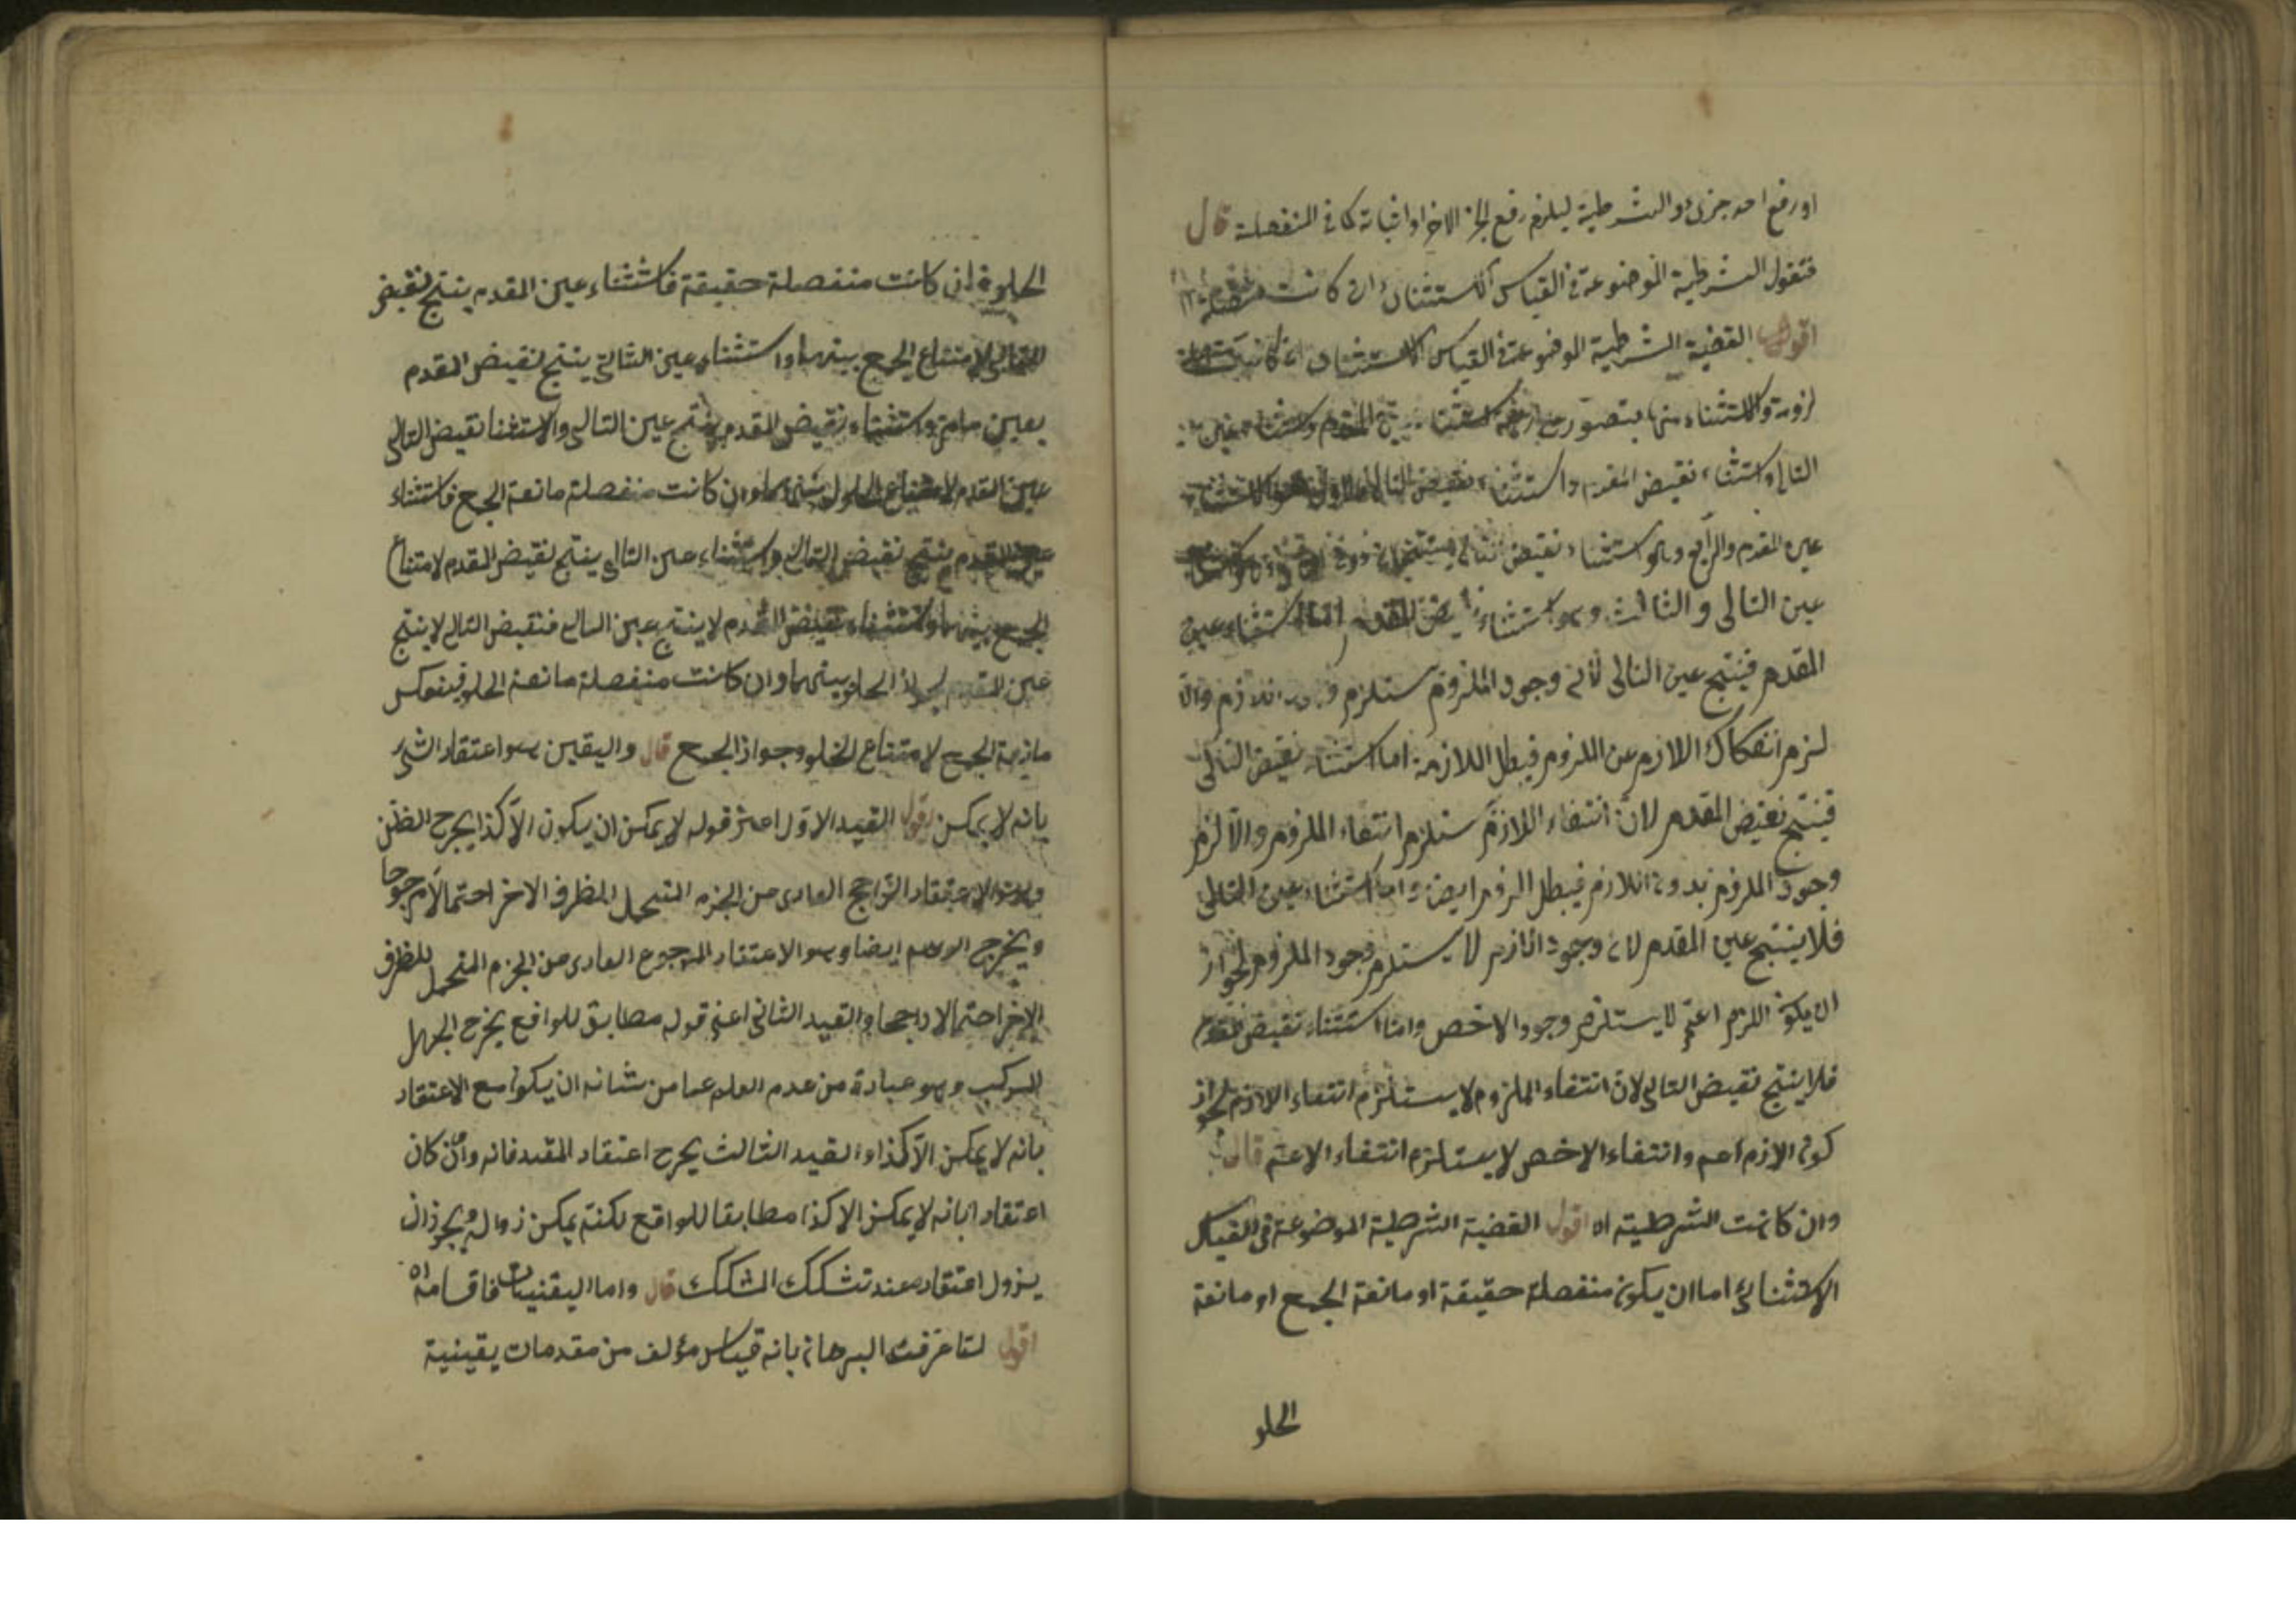 او رفع احد جزئى الشرطية ليلزم رفع الجزء الاخر او اثباته كما فى المنفصلة قال
فنقول الشرطية الموضوعة فى القياس الاستثنائى ان كانت متصلة اه
اقول القضية الشرطية الموضوعة فى القياس الاستثنائى ان كانت متصلة
لزومية والاستثناء منها يتصور على اربعة استثناء عين المقدم واستثناء عين
التالى واستثناء نقيض المقدم واستثناء نقيض التالى
عين المقدم والرابع وهو استثناء نقيض التالى
عين التالى والثالث وهو استثناء نقيض المقدم اما استثناء عين
المقدم فينتج عين التالى لان وجود الملزوم يستلزم وجود اللازم والا
لزم انفكاك اللازم عن الملزوم فيبطل اللازمة اما استثناء نقيض التالى
فينتج نقيض المقدم لان انتفاء اللازم يستلزم انتفاء الملزوم والا لزم
وجود الملزوم بدون اللازم فيبطل اللزوم ايضا واما استثناء عين التالى
فلا ينتج عين المقدم لان وجود اللازم لا يستلزم وجود الملزوم لجواز
ان يكون اللازم اعم لا يستلزم وجود الاخص واما استثناء نقيض مقدم
فلا ينتج نقيض التالى لان انتفاء الملزوم لا يستلزم انتفاء اللازم لجواز
كون الازم اعم وانتفاء الاخص لا يستلزم انتفاء الاعم قال
وان كانت الشرطية اه اقول القضية الشرطية الموضوعة فى القياس
الاستثنائى اما ان يكون منفصلة حقيقة او مانعة الجمع او مانعة
الخلو
الخلو فان كانت منفصلة حقيقة فاستثناء عين المقدم ينتج نقيض
التالى لامتناع الجمع بينهما واستثناء عين التالى ينتج نقيض المقدم
بعين ما مر واستثناء نقيض المقدم ينتج عين التالى والاستثنا نقيض التالى
عين المقدم لامتناع الخلو بينهما وان كانت منفصلة مانعة الجمع فاستثناء
عين المقدم ينتج نقيض التالى واستثناء عين التالى ينتج نقيض المقدم لامتناع
الجمع بينهما واستثناء نقيض المقدم لا ينتج عين التالى فنقيض التالى لا ينتج
عين المقدم لجواز الخلو بينهما وان كانت منفصلة مانعة الخلو فينعكس
مانعة الجمع لامتناع الخلو وجواز الجمع قال واليقين هو اعتقاد الشئ
بانه لا يمكن اقول القيد الاول اعنى قوله لا يمكن ان يكون الا كذا يخرج الظن
وهو الاعتقاد الراجح العارى من الجزم المتحمل للطرف الاخر احتمالا مرجوحا
ويخرج الوهم ايضا وهو الاعتقاد المرجوع العارى من الجزم المتحمل للطرف
الاخر احتمالا راجحا والقيد الثانى اعنى قوله مطابق للواقع يخرج الجهل
المركب وهو عبارة من عدم العلم عما من شانه ان يكون مع الاعتقاد
بانه لا يمكن الا كذا والقيد الثالث يخرج اعتقاد المقلد فانه وان كان
اعتقادا بانه لا يمكن الا كذا مطابقا للواقع لكنه يمكن زواله ويجوز ان
يزول اعتقاده عند تشكك المشكك قال واما اليقينيات فاقسامه اه
اقول لما عرفت البرهان بانه قياس مؤلف من مقدمات يقينية